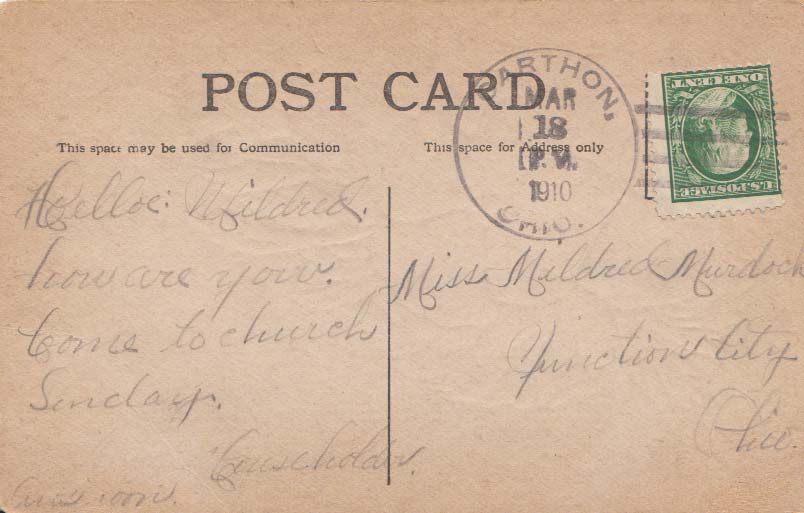 POST CARD
This space may be used for Communication
This space for Address only
ARTHON,
OHIO.
MAR
18
P.M.
1910
ONE CENT
U.S. POSTAGE
Helloe: Mildred.
how are you.
Come to church
Sunday.
Householder.
Miss Mildred Murdock
Junction City
Ohio.